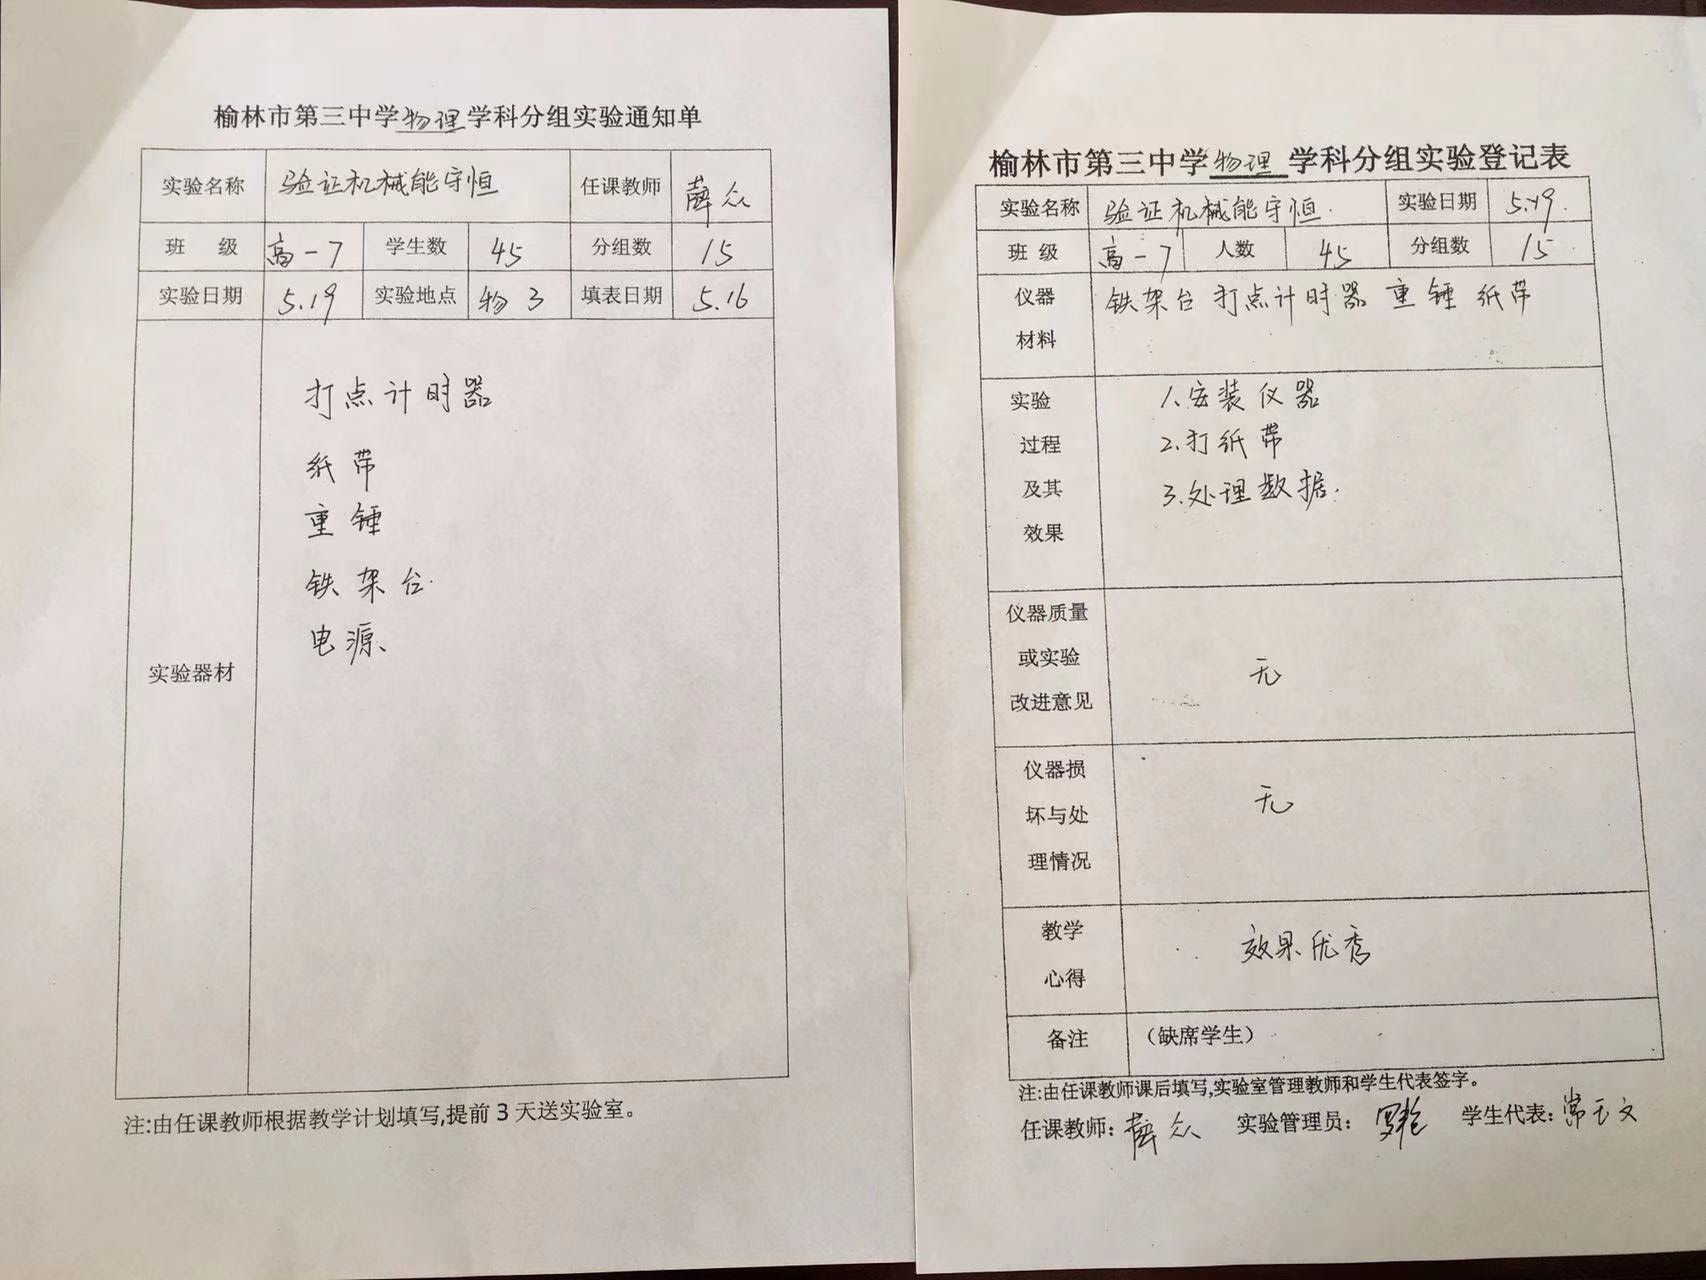 榆林市第三中学物理学科分组实验通知单
实验名称 验证机械能守恒 任课教师 薛众
班 级 高一7 学生数 45 分组数 15
实验日期 5.19 实验地点 物3 填表日期 5.16
打点计时器
纸带
重锤
铁架台
电源
实验器材
注:由任课教师根据教学计划填写,提前3天送实验室。
榆林市第三中学物理学科分组实验登记表
实验名称 验证机械能守恒. 实验日期 5.19.
班 级 高一7 人数 45 分组数 15
仪器 铁架台 打点计时器 重锤 纸带
材料
实验 1.安装仪器
过程 2.打纸带
及其 3.处理数据.
效果
仪器质量
或实验 无
改进意见
仪器损
坏与处 无
理情况
教学 效果优秀
心得
备注 （缺席学生）
注:由任课教师课后填写,实验室管理教师和学生代表签字。
任课教师: 薛众 实验管理员: 学生代表: